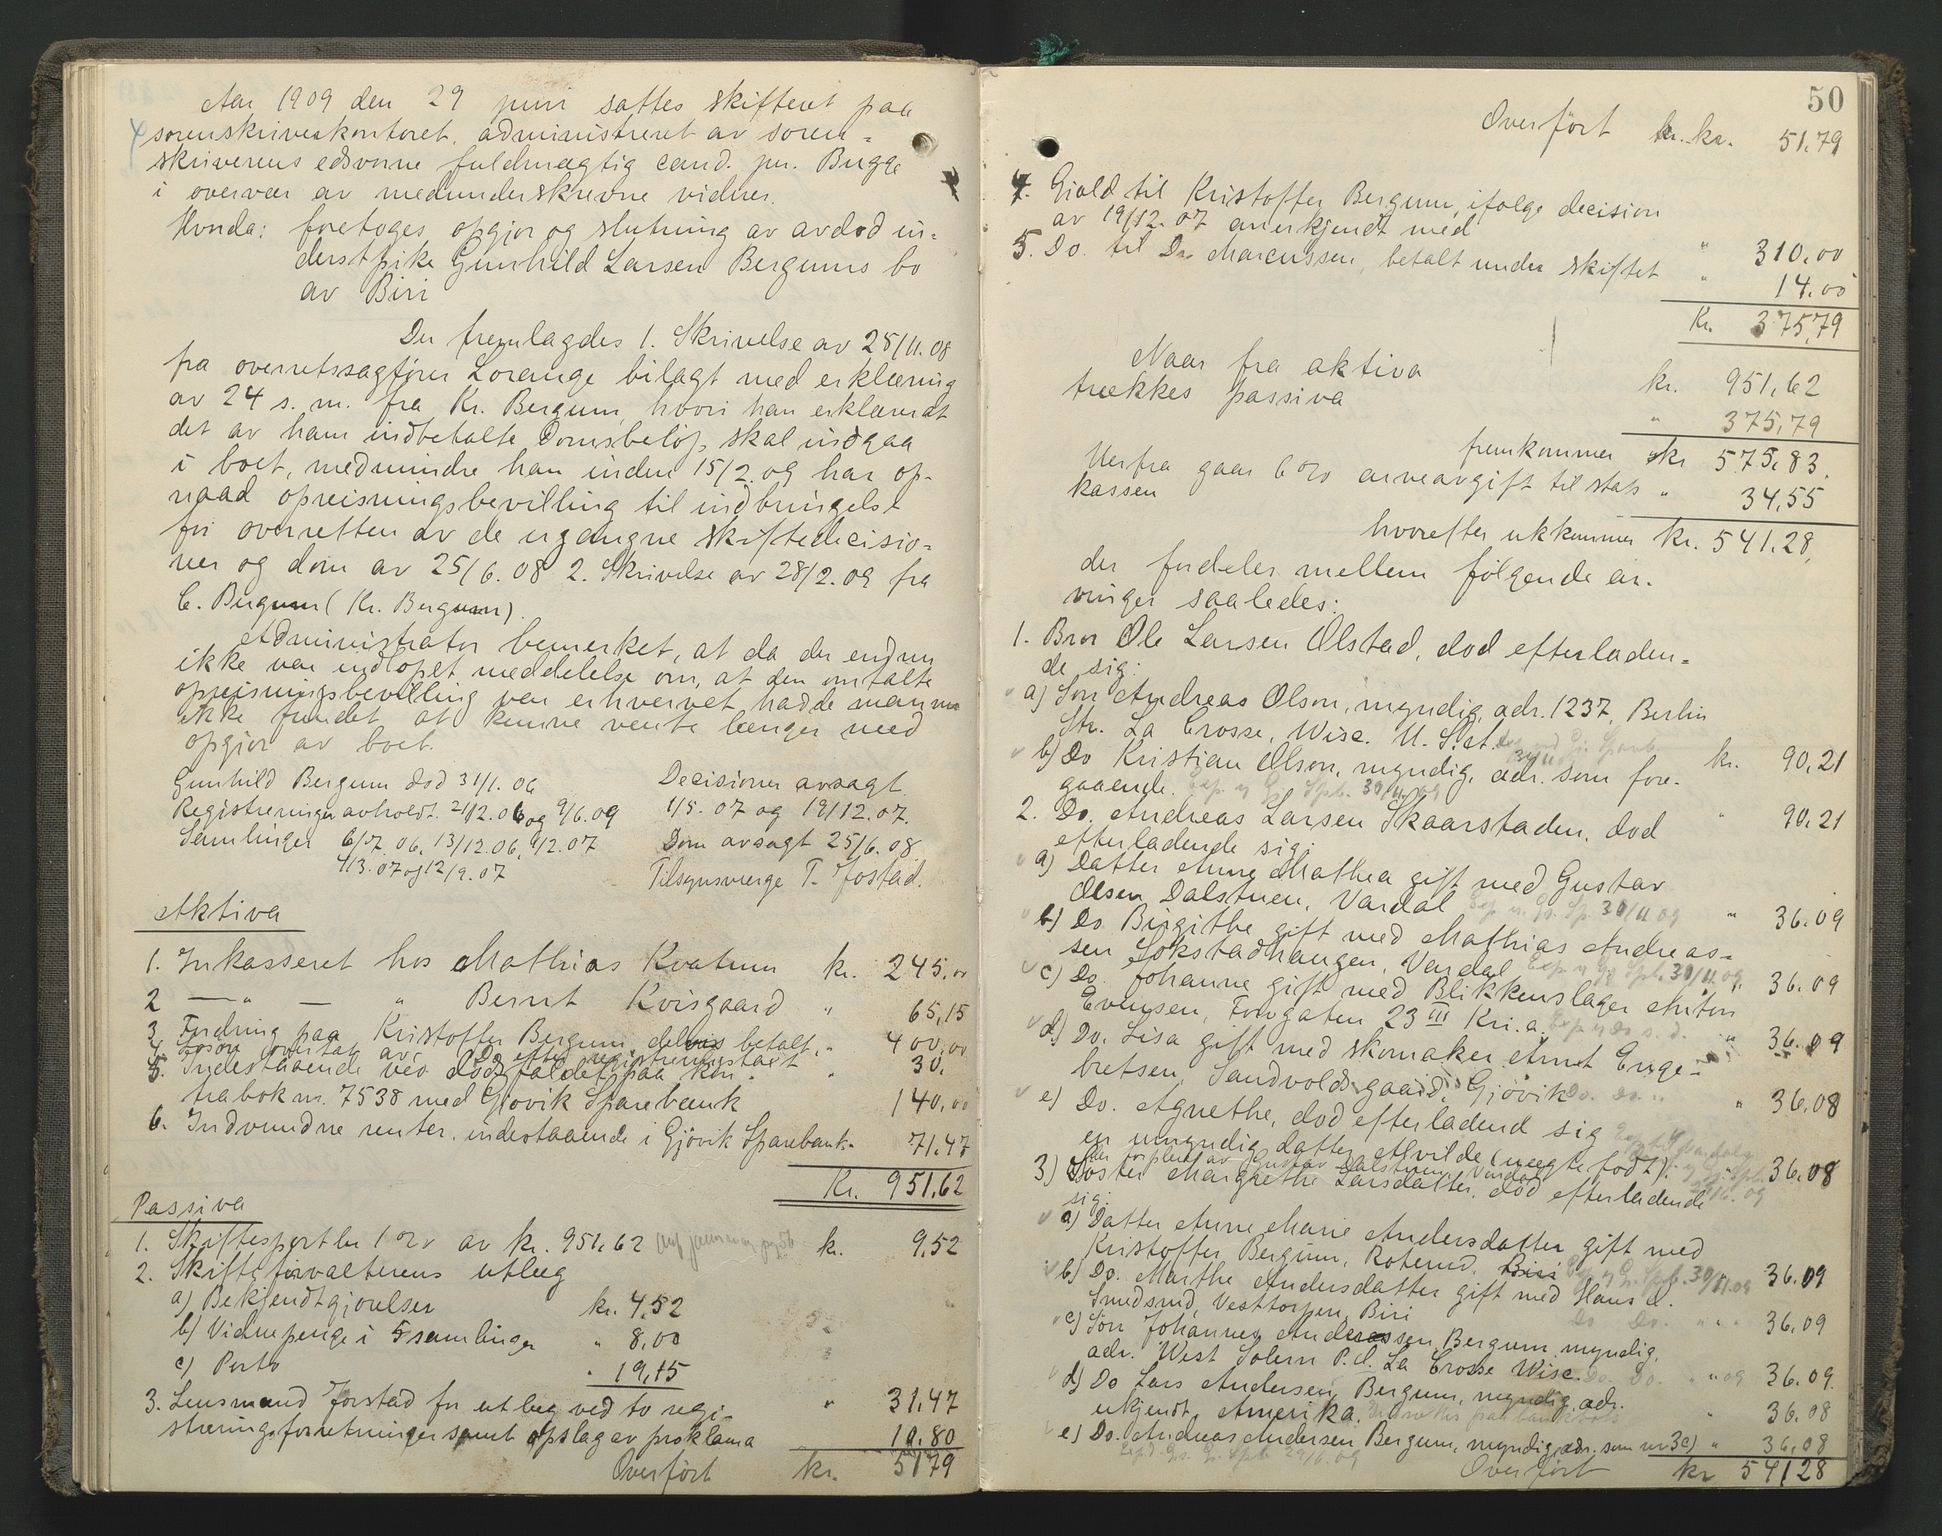 Aar 1909 den 29 juni sattes skifteret paa
sorenskriverkontoret, administreret av soren-
skriverens edsvorne fuldmægtig cand. jur. Bugge
i overvær av medunderskrevne vidner.
Hvorda: foretoges opgjør og slutning av avdød in-
derstpike Gunhild Larsen Bergums bo
av Biri
Der fremlagdes 1. Skrivelse av 25/11.08
fra overretssagfører Lorange bilagt med erklæring
av 24 s. m. fra Kr. Bergum, hvori han erklærer at
det av ham indbetalte Domsbeløp skal indgaa
i boet, medmindre han inden 15/2.09 har op-
naad opreisningsbevilling til indbringelse
for overretten av de ergangne skiftedecisio-
ner og dom av 25/6.08 2. Skrivelse av 28/2.09 fra
C. Bergum (Kr. Bergum).
Administrator bemerket, at da der endnu
ikke var indløpet meddelelse om, at den omtalte
opreisningsbevilling var erhvervet hadde man
ikke fundet at kunne vente længer med
opgjør av boet.
Gunhild Bergum død 31/1.06 Decisioner avsagt
Registreringer avholdt 2/12.06 og 9/6.09 1/5.07 og 19/12.07.
Samlinger 6/7.06, 13/12.06, 9/2.07 Dom avsagt 25/6.08
4/3.07 og 12/9.07 Tilsynsværge T. Jostad.
Aktiva
1. Inkasseret hos Mathias Kvatum kr. 245.00
2 — " — " Bernt Kvisgaard " 65,15
3 Fordring paa Kristoffer Bergum, delvis betalt " 400,00
4 Løsøre overtat av Do efter registreringstakt " 30.
5. Indestaaende ved dødsfaldet paa kon-
trabok nr. 7538 med Gjøvik Sparebank 140,00
6. Indvundne renter, indestaaende i Gjövik Sparebank 71.47
Kr. 951,62
Passiva
1. Skiftesportler 1 o/o av kr. 951,62 kr. 9,52
2. Skifteforvalterens utlæg
a) Bekjendtgjørelser kr. 4.52
b) Vidnepenge i 5 samlinger " 8,00
c) Porto " 19,15
" 31,47
3. Lensmand Jostad for utlæg ved to regi-
streringsforretninger samt opslag av proklama 10.80
Overført kr. 51 79
50
Overført kr. 51,79
4. Gjæld til Kristoffer Bergum, ifølge decision
av 19/12.07 anerkjendt med " 310,00
5. Do. til Dr. Marcussen, betalt under skiftet " 14.00
Kr. 375,79
Naar fra aktiva kr. 951,62
trækkes passiva " 375,79
fremkommer kr 575,83.
Herfra gaar 6 o/o arveavgift til stats-
kassen " 34,55
hvorefter utkommer kr. 541.28,
der fordeles mellem følgende ar-
vinger saaledes:
1. Bror Ole Larsen Olstad, død efterladen-
de sig:
a) Søn Andreas Olson, myndig, adr. 1237, Berlin
Str. La Crosse, Wisc. U. S. A. kr. 90,21
b) Do Kristian Olson, myndig, adr. som fore-
gaaende. Exp. 30/11.09 " 90,21
2. Do. Andreas Larsen Skaarstaden, død
efterladende sig:
a) Datter Anne Mathea gift med Gustav
Olsen Dalstuen, Vardal Exp. 30/11 09 " 36.09
b) Do. Birgithe gift med Mathias Andreas-
sen Sokstadhaugen, Vardal Exp. 30/11.09, 36.09
c) Do. Johanne gift med Blikkenslager Anton
Evensen, Torvgaten 23 III Kri.a. " 36.09
d) Do. Lisa gift med skomaker Arnt Enge-
bretsen, Sandvoldsgaard, Gjövik Do. Do. " " 36,08
e) Do. Agnethe, død efterladend sig
en umyndig datter Alvilde (uægte født). 36.08
3) Søster Margrethe Larsdatter, død efterladende
sig:
a) Datter Anne Marie Andersdatter gift med
Kristoffer Bergum, Roterud, Biri Exp. 30/11.09 36.09
b) Do. Marthe Andersdatter gift med Hans A.
Smedsrud, Vesttorpen, Biri Do. Do. " " " 36.09
c) Søn Johannes Anderssen Bergum, myndig,
adr. West Salem P.O. La Crosse Wisc. Do. Do. 36.09
d) Do Lars Andersen Bergum, myndig, adr.
ukjendt, Amerika. " 36.08
e) Do. Andreas Andersen Bergum, myndig, adr. som nr 3c) " 36,08
Overført kr 541 28